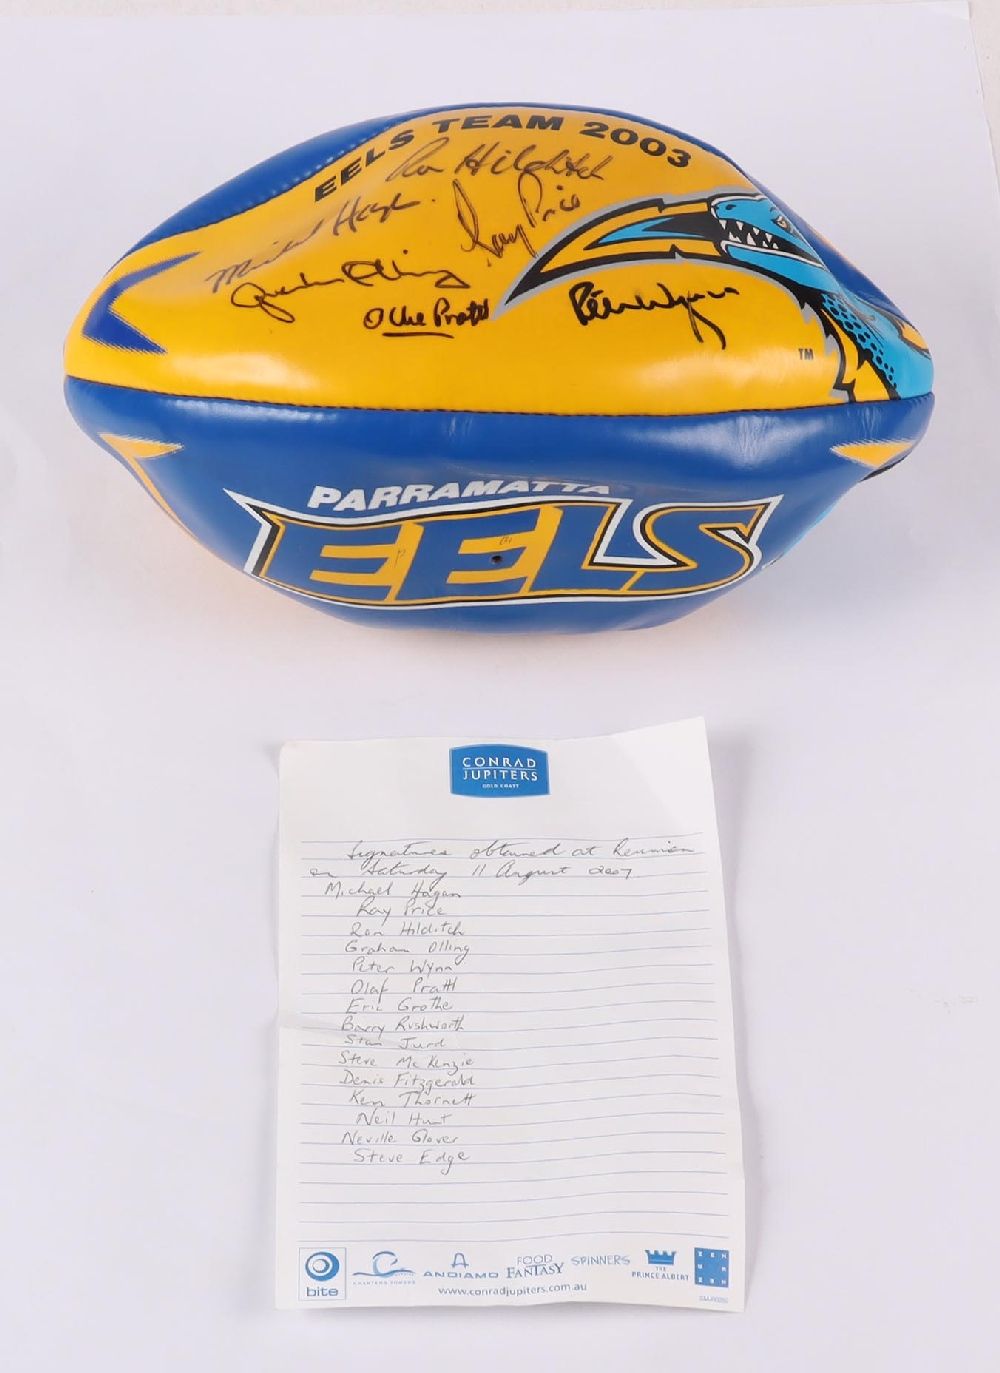 EELS TEAM 2003
Ron Hilditch
Ray Price
Michael Hagan.
Graham Olling
Olaf Prattl
Peter Wynn
TM
PARRAMATTA
EELS
CONRAD
JUPITERS
GOLD COAST
Signatures obtained at Reunion
on Saturday 11 August 2007
Michael Hagan
Ray Price
Ron Hilditch
Graham Olling
Peter Wynn
Olaf Prattl
Eric Grothe
Barry Rushworth
Stan Jurd
Steve McKenzie
Denis Fitzgerald
Ken Thornett
Neil Hunt
Neville Glover
Steve Edge
bite
CHARTERS TOWERS
ANDIAMO
FOOD
FANTASY
SPINNERS
THE
PRINCE ALBERT
www.conradjupiters.com.au